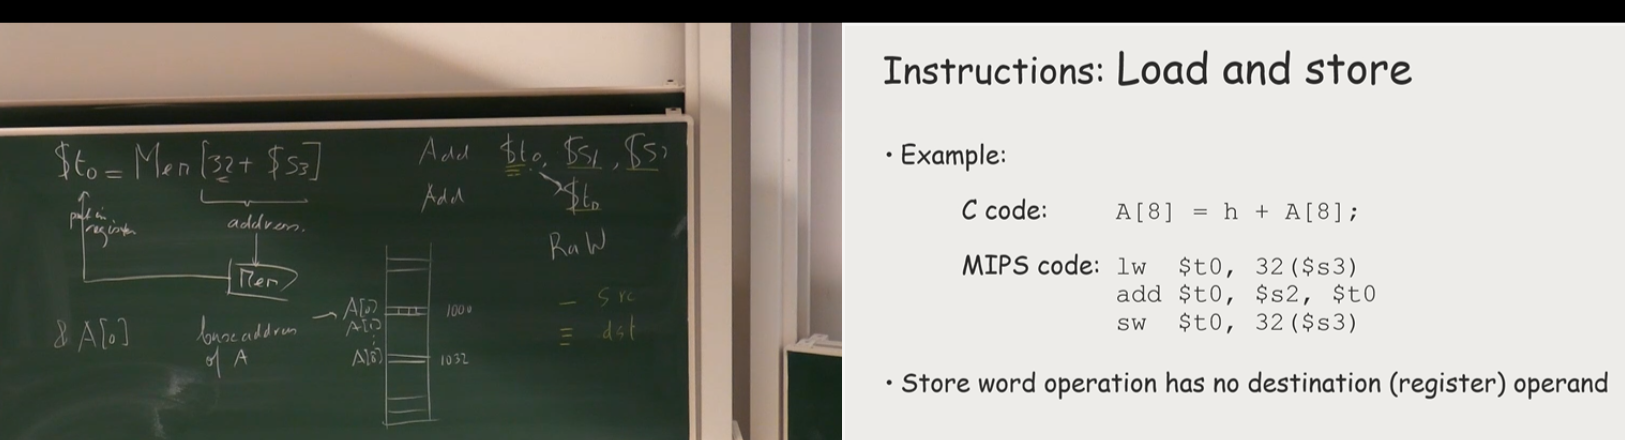 $t0 = Mem [32 + $s3]
put in
register
address.
Mem
& A[0]
base address
of A
A[0]
A[1]
A[8]
1000
1032
Add $t0, $s1, $s2
Add $t0
RaW
– src
≡ dst
Instructions: Load and store
• Example:
C code: A[8] = h + A[8];
MIPS code: lw $t0, 32($s3)
add $t0, $s2, $t0
sw $t0, 32($s3)
• Store word operation has no destination (register) operand